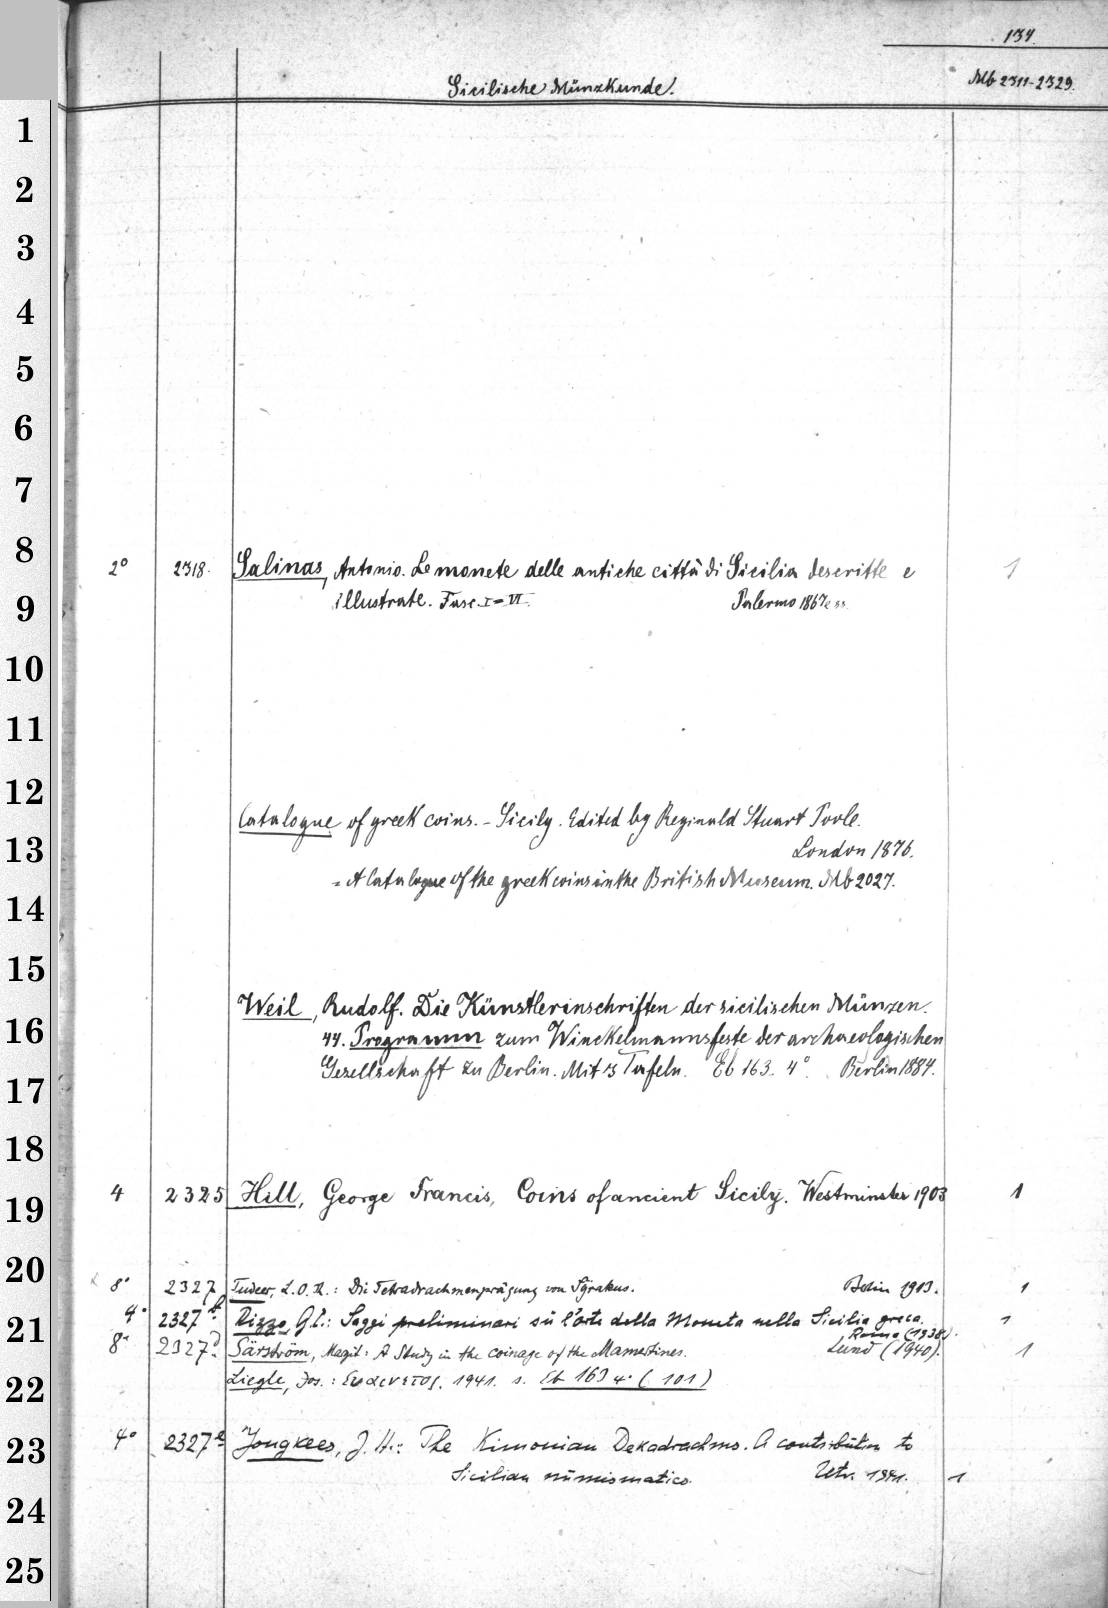 134.
Sicilische Münzkunde.
Mb 2311-2329.
1
2
3
4
5
6
7
8
9
10
11
12
13
14
15
16
17
18
19
20
21
22
23
24
25
2° 2318. Salinas, Antonio. Le monete delle antiche città di Sicilia descritte e 1
illustrate. Fasc. I-VI. Palermo 1867 e ss.
Catalogue of greek coins. - Sicily. Edited by Reginald Stuart Poole.
London 1876.
= A Catalogue of the greek coins in the British Museum. Mb 2027.
Weil, Rudolf. Die Künstlerinschriften der sicilischen Münzen.
44. Programm zum Winckelmannsfeste der archaeologischen
Gesellschaft zu Berlin. Mit 3 Tafeln. Eb 163. 4°. Berlin 1884.
4 2325 Hill, George Francis, Coins of ancient Sicily. Westminster 1903 1
8° 2327 Tudeer, L.O.Th.: Die Tetradrachmenprägung von Syrakus. Berlin 1913. 1
4° 2327 b. Rizzo, G.E.: Saggi preliminari sù l'arte della Moneta nella Sicilia greca. 1
Roma (1938).
8° 2327 d. Särström, Magit: A Study in the coinage of the Mamertines. Lund (1940). 1
Liegle, Jos.: Ευαινετος. 1941. s. Eb 163 4° (101)
4° 2327 e Jongkees, J.H.: The Kimonian Dekadrachms. A contribution to
Sicilian numismatics. Utr. 1941. 1